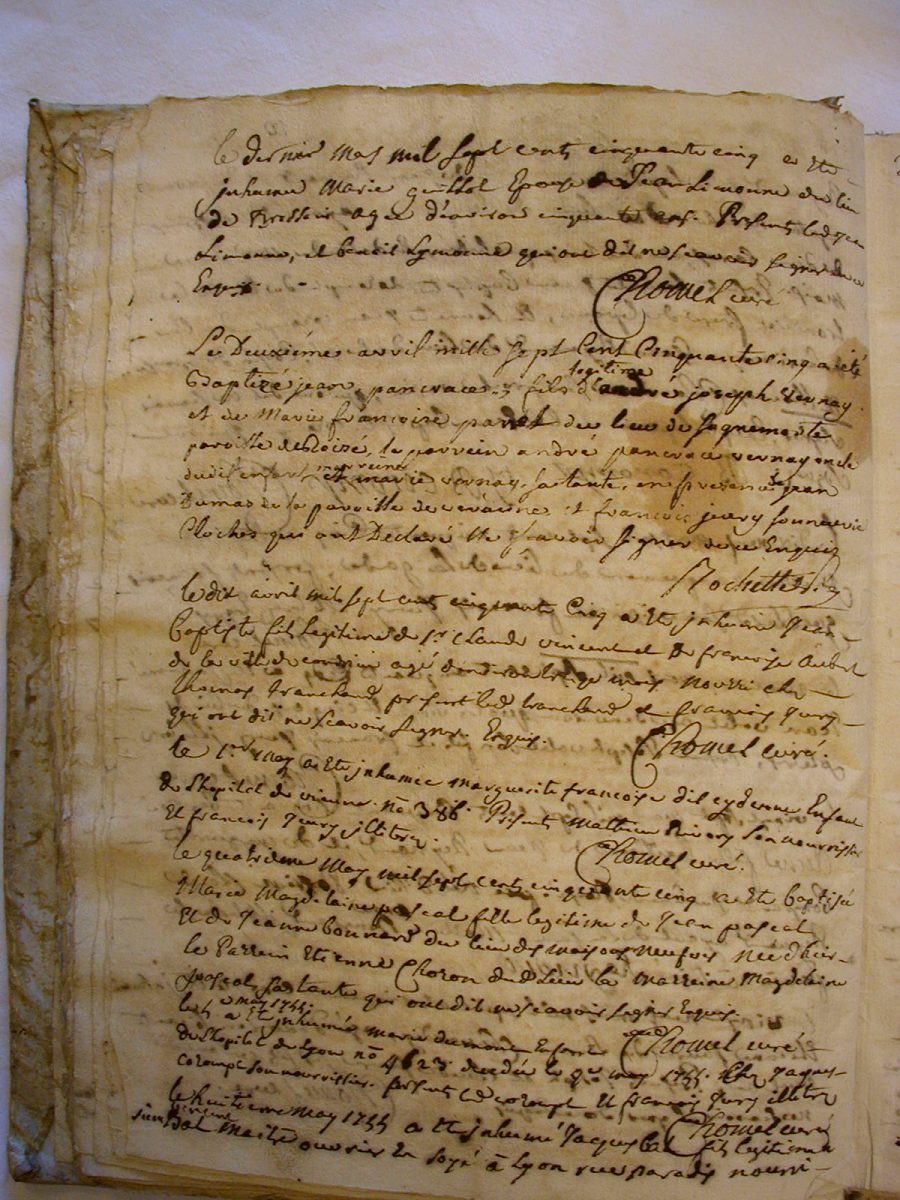 le dernier mars mil sept cents cinquante cinq a été
inhumée Marie guillot Epouse de Jean Limonne du lieu
de agée d'environ cinquante ans. Présents led. Jean
Limonne, et benoil Lymonne qui ont dit ne scavoir signer de ce
Enquis.
Chomel curé
Le Deuxiéme avril mille sept Cent Cinquante cinq a été
Baptizé jean pancrace fils legitime d'andré joseph vernay
et de Marie francoise paret du lieu de
paroisse de le parrein andré pancrace vernay oncle
dudit enfant, et marreine marie vernay, sa tante, en presence de jean
Dumas de la paroisse de veranne et francois jury sonneur de
Cloches qui ont Declaré ne scavoir signer de ce Enquis
Rochette
le dix avril mil sept cents cinquante Cinq a été inhumé Jean
Baptiste fils legitime de Sr. Claude vincent et De francoise Aubert
de la ville de condrieu agé d'environ mois nourri chez
thomas tranchand present led. tranchand et francois Jury
qui ont dit ne scavoir signer. Enquis.
Chomel curé.
le 1er May a été inhumée marguerite francoise dit Enfant
de l'hopital de vienne. no 386. Présents Mathieu son nourrissier
Et francois Jury illitere.
Chomel curé.
le quatrieme May mil sept cents cinquante cinq a été baptisée
Marie Magdelaine pascal fille legitime de Jean pascal
Et de Jeanne bonnard du lieu des maisons neufves née d'hier
le Parrein Etienne Choron dud. Lieu la Marreine Magdeleine
pascal sa tante qui ont dit ne scavoir signer Enquis.
Chomel curé
le 5e may 1755. a été inhumée marie dumont Enfant
de l'hopital de Lyon no 4623. decedée le 4e may 1755. chez Jaques
corompt son nourrissier. présents led. corompt Et francois Jury illitere
Chomel curé
le huitieme may 1755 a été inhumé Jaques fils legitime
sieur vincent Bal maitre ouvrier En soye à Lyon rue paradis nourri